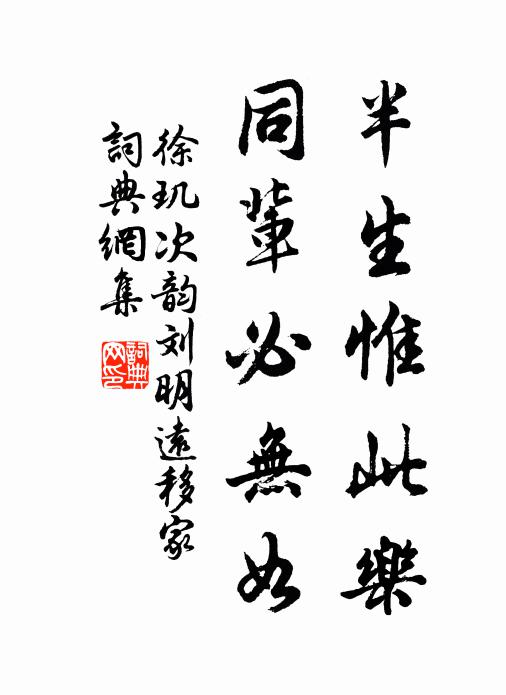 半生惟此樂
同輩必無如
徐玑次韵刘明遠移家
詞典網集
詞典网印